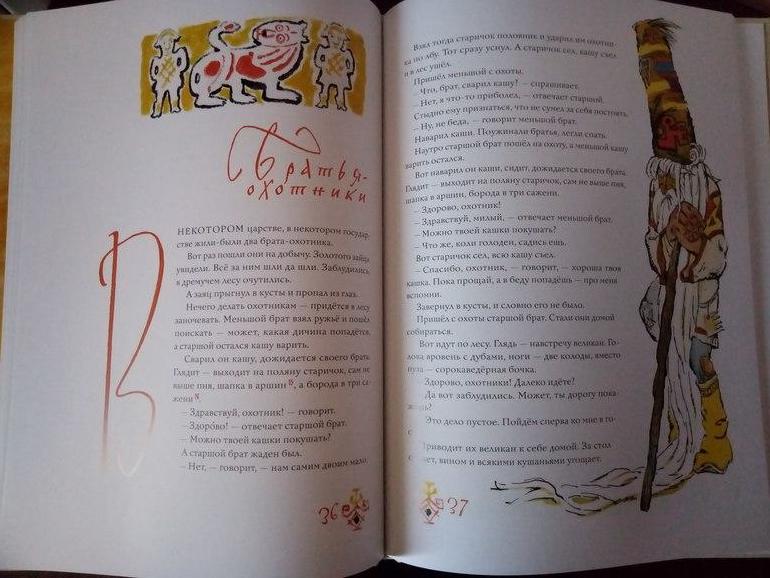 Братья-
охотники
В НЕКОТОРОМ царстве, в некотором государ-
стве жили-были два брата-охотника.
Вот раз пошли они на добычу. Золотого зайца
увидели. Всё за ним шли да шли. Заблудились,
в дремучем лесу очутились.
А заяц прыгнул в кусты и пропал из глаз.
Нечего делать охотникам — придётся в лесу
заночевать. Меньшой брат взял ружьё и пошёл
поискать — может, какая дичина попадётся,
а старшой остался кашу варить.
Сварил он кашу, дожидается своего брата.
Глядит — выходит на поляну старичок, сам не
выше пня, шапка в аршин, а борода в три са-
жени.
— Здравствуй, охотник! — говорит.
— Здоро́во! — отвечает старшой брат.
— Можно твоей кашки покушать?
А старшой брат жаден был.
— Нет, — говорит, — нам самим двоим мало.
36
Взял тогда старичок половник и ударил им охотни-
ка по лбу. Тот сразу уснул. А старичок сел, кашу съел
и в лес ушёл.
Пришёл меньшой с охоты.
— Что, брат, сварил кашу? — спрашивает.
— Нет, я что-то приболел, — отвечает старший.
Стыдно ему признаться, что не сумел за себя постоять.
— Ну, не беда, — говорит меньшой брат.
Наварил каши. Поужинали братья, легли спать.
Наутро старшой брат пошёл на охоту, а меньшой кашу
варить остался.
Вот наварил он каши, сидит, дожидается своего брата.
Глядит — выходит на поляну старичок, сам не выше пня,
шапка в аршин, борода в три сажени.
— Здорово, охотник!
— Здравствуй, милый, — отвечает меньшой брат.
— Можно твоей кашки покушать?
— Что же, коли голоден, садись ешь.
Вот старичок сел, всю кашу съел.
— Спасибо, охотник, — говорит, — хороша твоя
кашка. Пока прощай, а в беду попадёшь — про меня
вспомни.
Завернул в кусты, и словно его не было.
Пришёл с охоты старшой брат. Стали они домой
собираться.
Вот идут по лесу. Глядь — навстречу великан. Го-
лова вровень с дубами, ноги — две колоды, вместо
пуза — сорокаведёрная бочка.
Здорово, охотники! Далеко идёте?
Да вот заблудились. Может, ты дорогу пока-
жешь?
Это дело пустое. Пойдём сперва ко мне в го-
Приводит их великан к себе домой. За стол
вином и всякими кушаньями угощает.
37